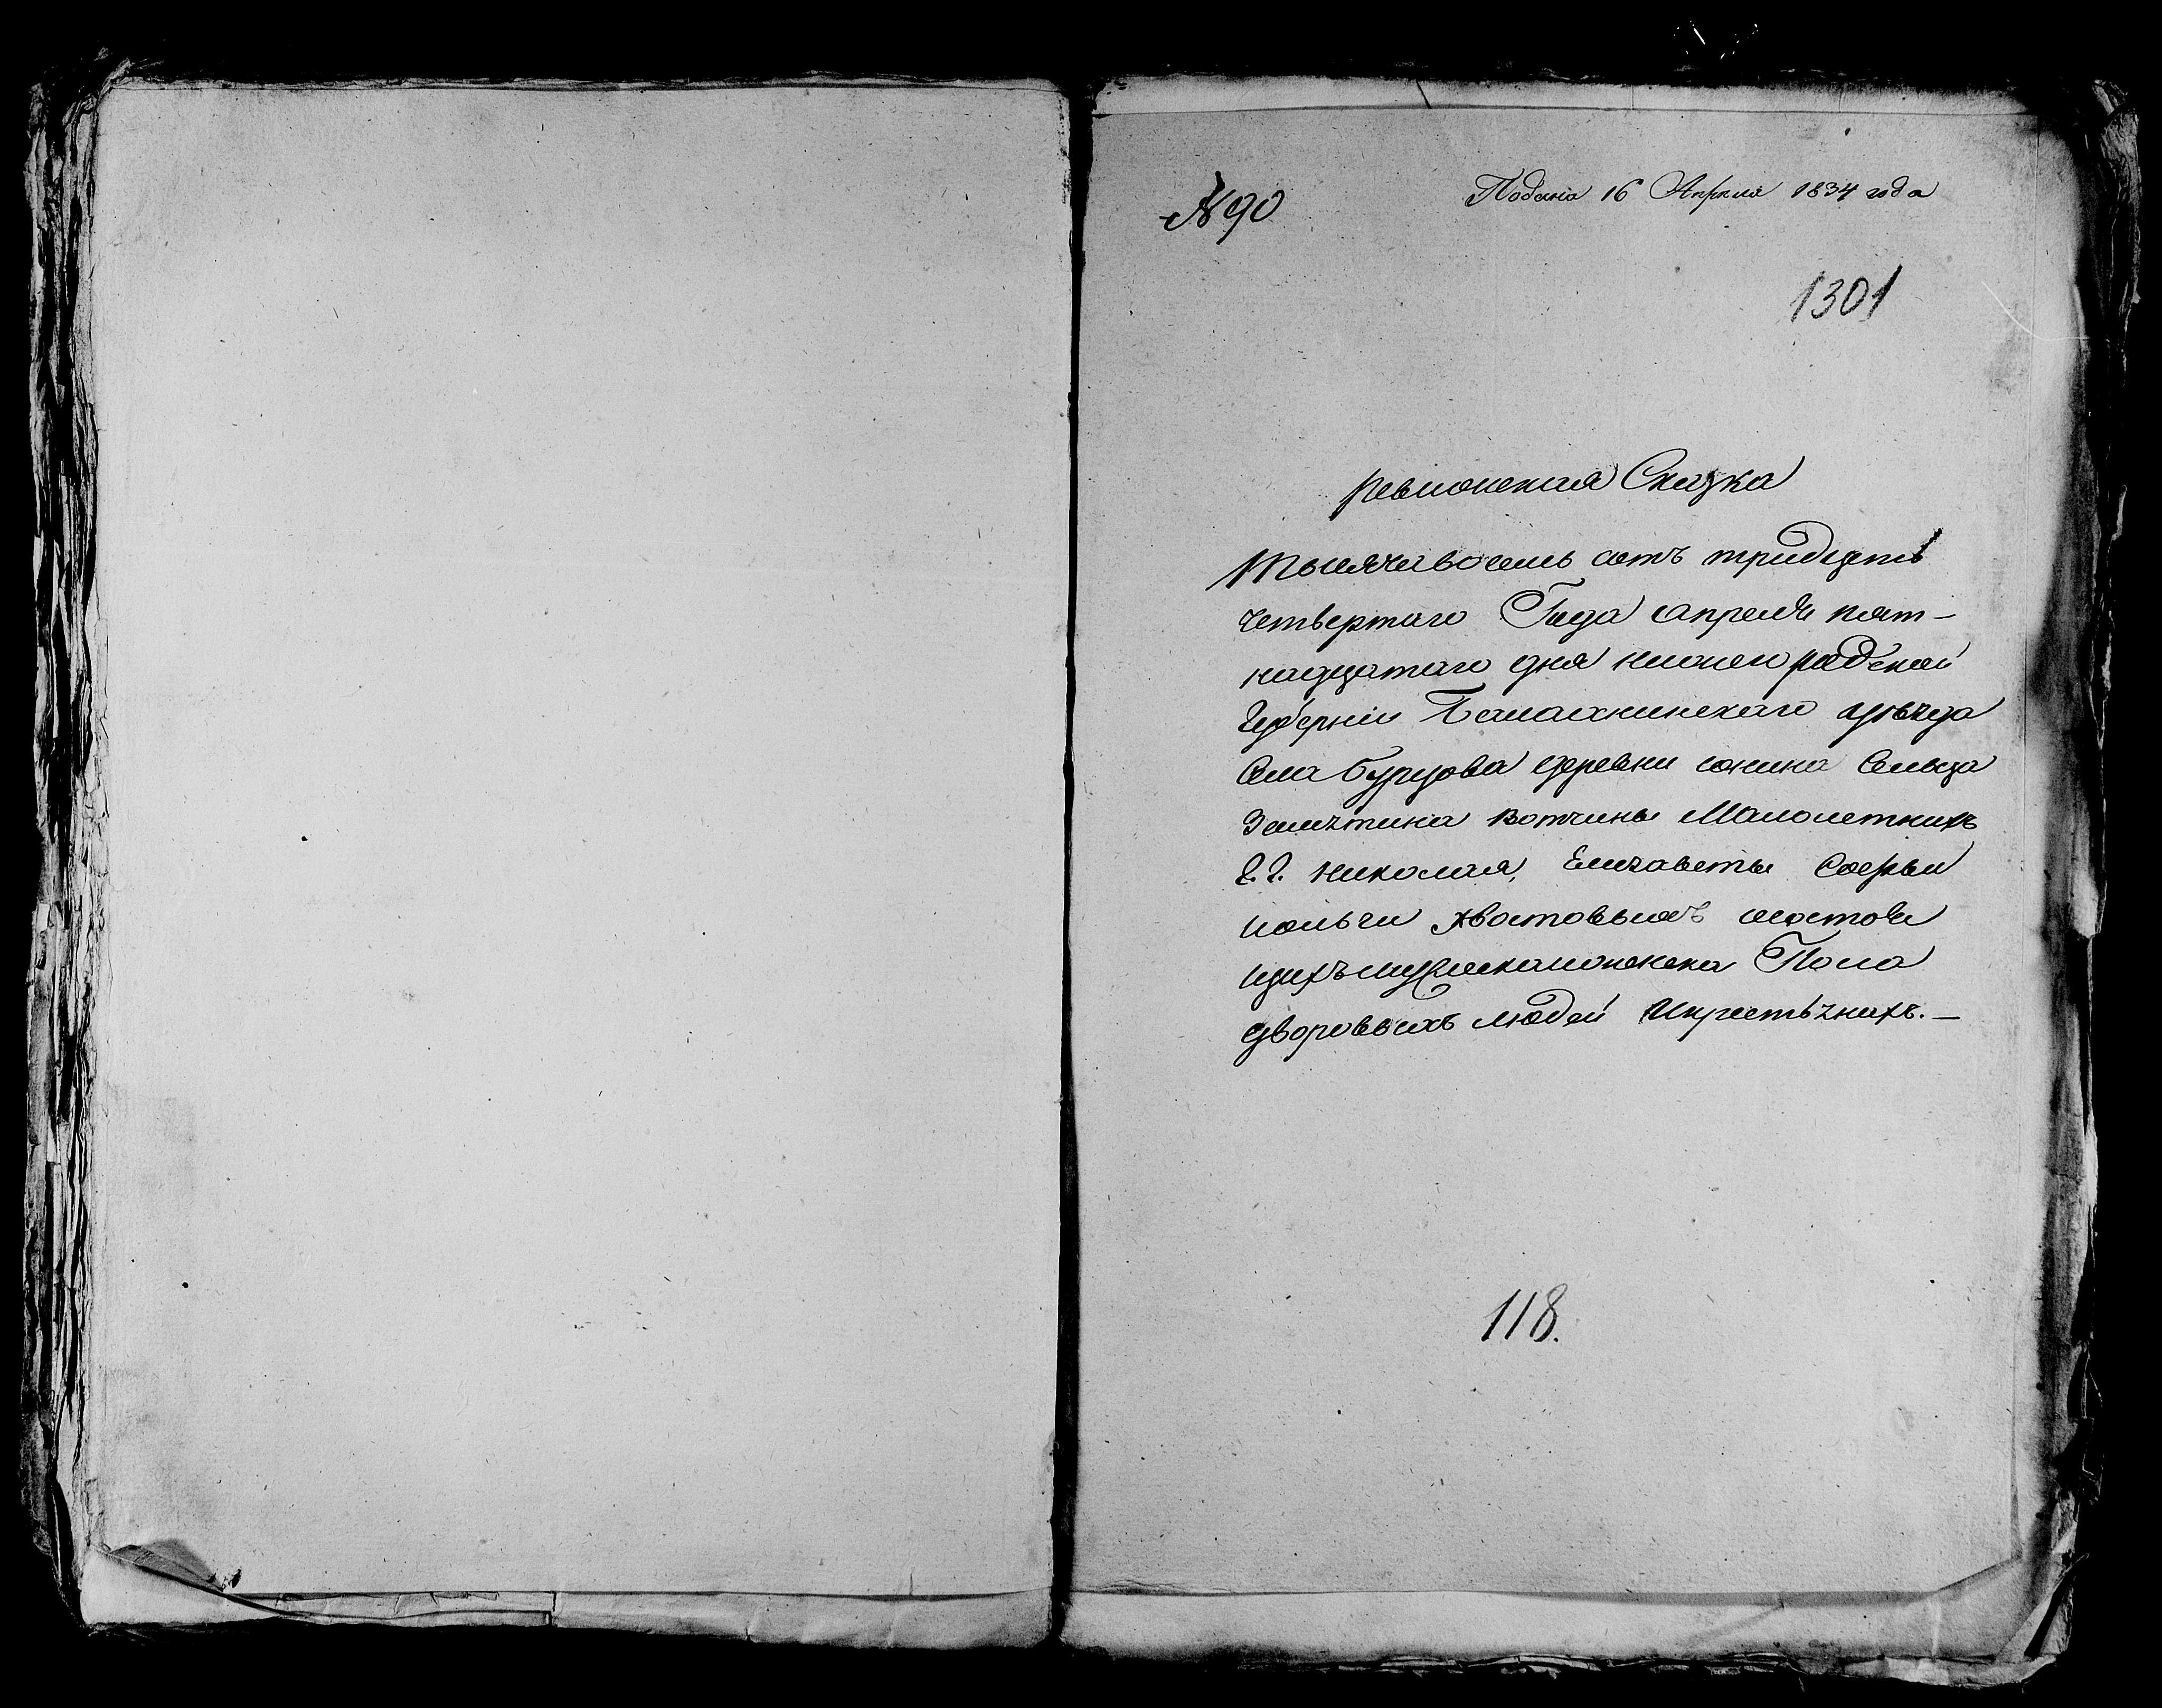 № 90
Подана 16 Апреля 1834 года
1301
ревизская Сказка
тысяча восемь сотъ тридцать
четвертаго Года апреля пят-
надцатаго дня нижегородской
Губерніи Балахнинскаго уѣзда
Села бурцова деревни сонина Сельца
вотчины Малолетнихъ
Г. Г. николая, Елизаветы Софьи
хвостовыхъ состоя
щихъ мужеска и женска Пола
дворовыхъ людей икрестьянъ. —
118.